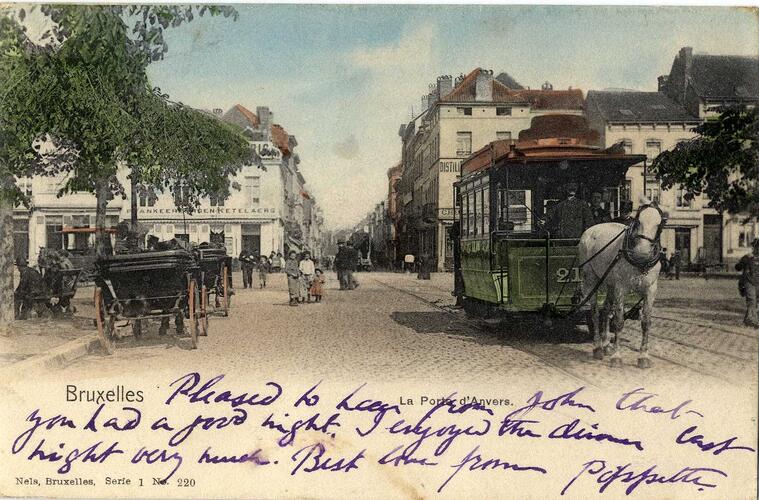 DISTIL
ANKEER
EN KETELAERS
21
Bruxelles
La Porte d'Anvers.
Pleased to hear from John that
you had a good night. I enjoyed the dinner last
night very much. Best love from Poppette
Nels, Bruxelles, Serie 1 No. 220